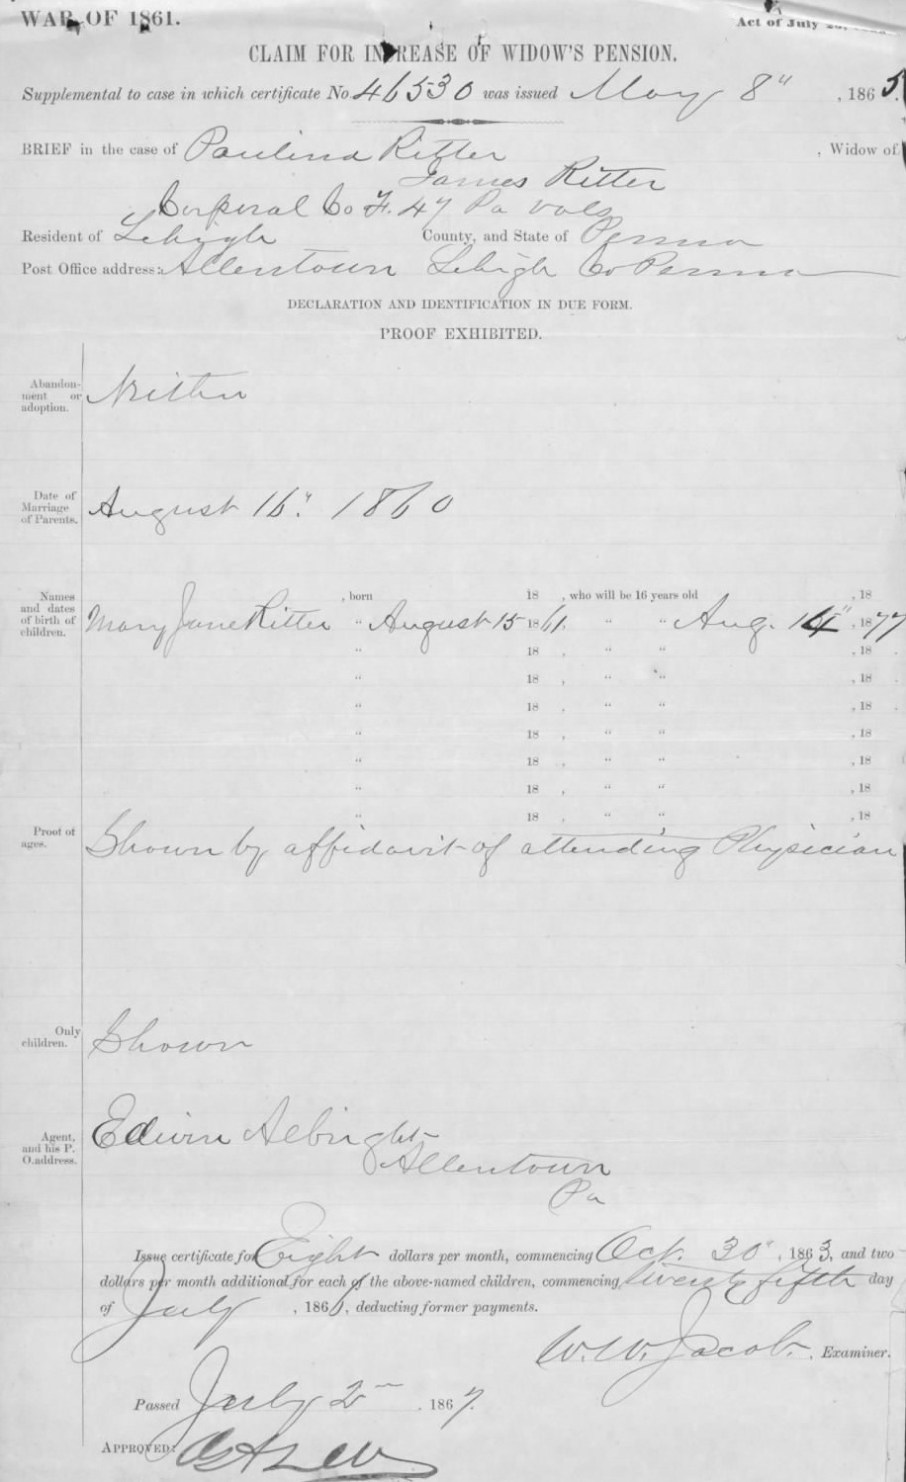 WAR OF 1861.
Act of July
CLAIM FOR INCREASE OF WIDOW'S PENSION.
Supplemental to case in which certificate No. 46530 was issued May 8" , 1865.
BRIEF in the case of Paulina Ritter , Widow of
James Ritter
Corporal Co F. 47 Pa Vols
Resident of Lehigh County, and State of Penna
Post Office address: Allentown Lehigh Co Penna
DECLARATION AND IDENTIFICATION IN DUE FORM.
PROOF EXHIBITED.
Abandon-
ment or
adoption.
Neither
Date of
Marriage
of Parents.
August 16" 1860
Names
and dates
of birth of
children.
, born 18 , who will be 16 years old , 18
Mary Jane Ritter " August 15 1861, " " Aug. 14" , 1877
" 18 , " " , 18
" 18 , " " , 18
" 18 , " " , 18
" 18 , " " , 18
" 18 , " " , 18
" 18 , " " , 18
" 18 , " " , 18
Proof of
ages.
Shown by affidavit of attending Physician
Only
children.
Shown
Agent,
and his P.
O. address.
Edwin Albright
Allentown
Pa
Issue certificate for Eight dollars per month, commencing Oct. 30" , 1863, and two
dollars per month additional for each of the above-named children, commencing twenty fifth day
of July , 1866, deducting former payments.
W. W. Jacob. , Examiner.
Passed July 2 , 1867.
APPROVED: